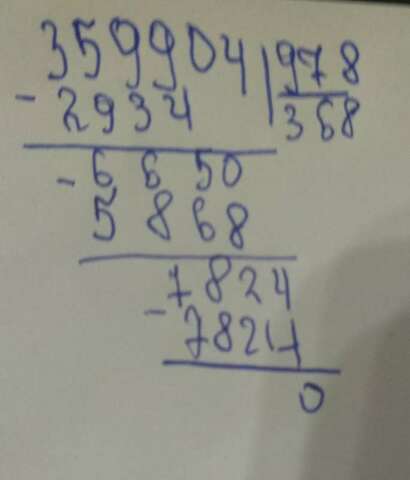 359904 978
- 2934 368
- 6650
5868
7824
- 7824
0